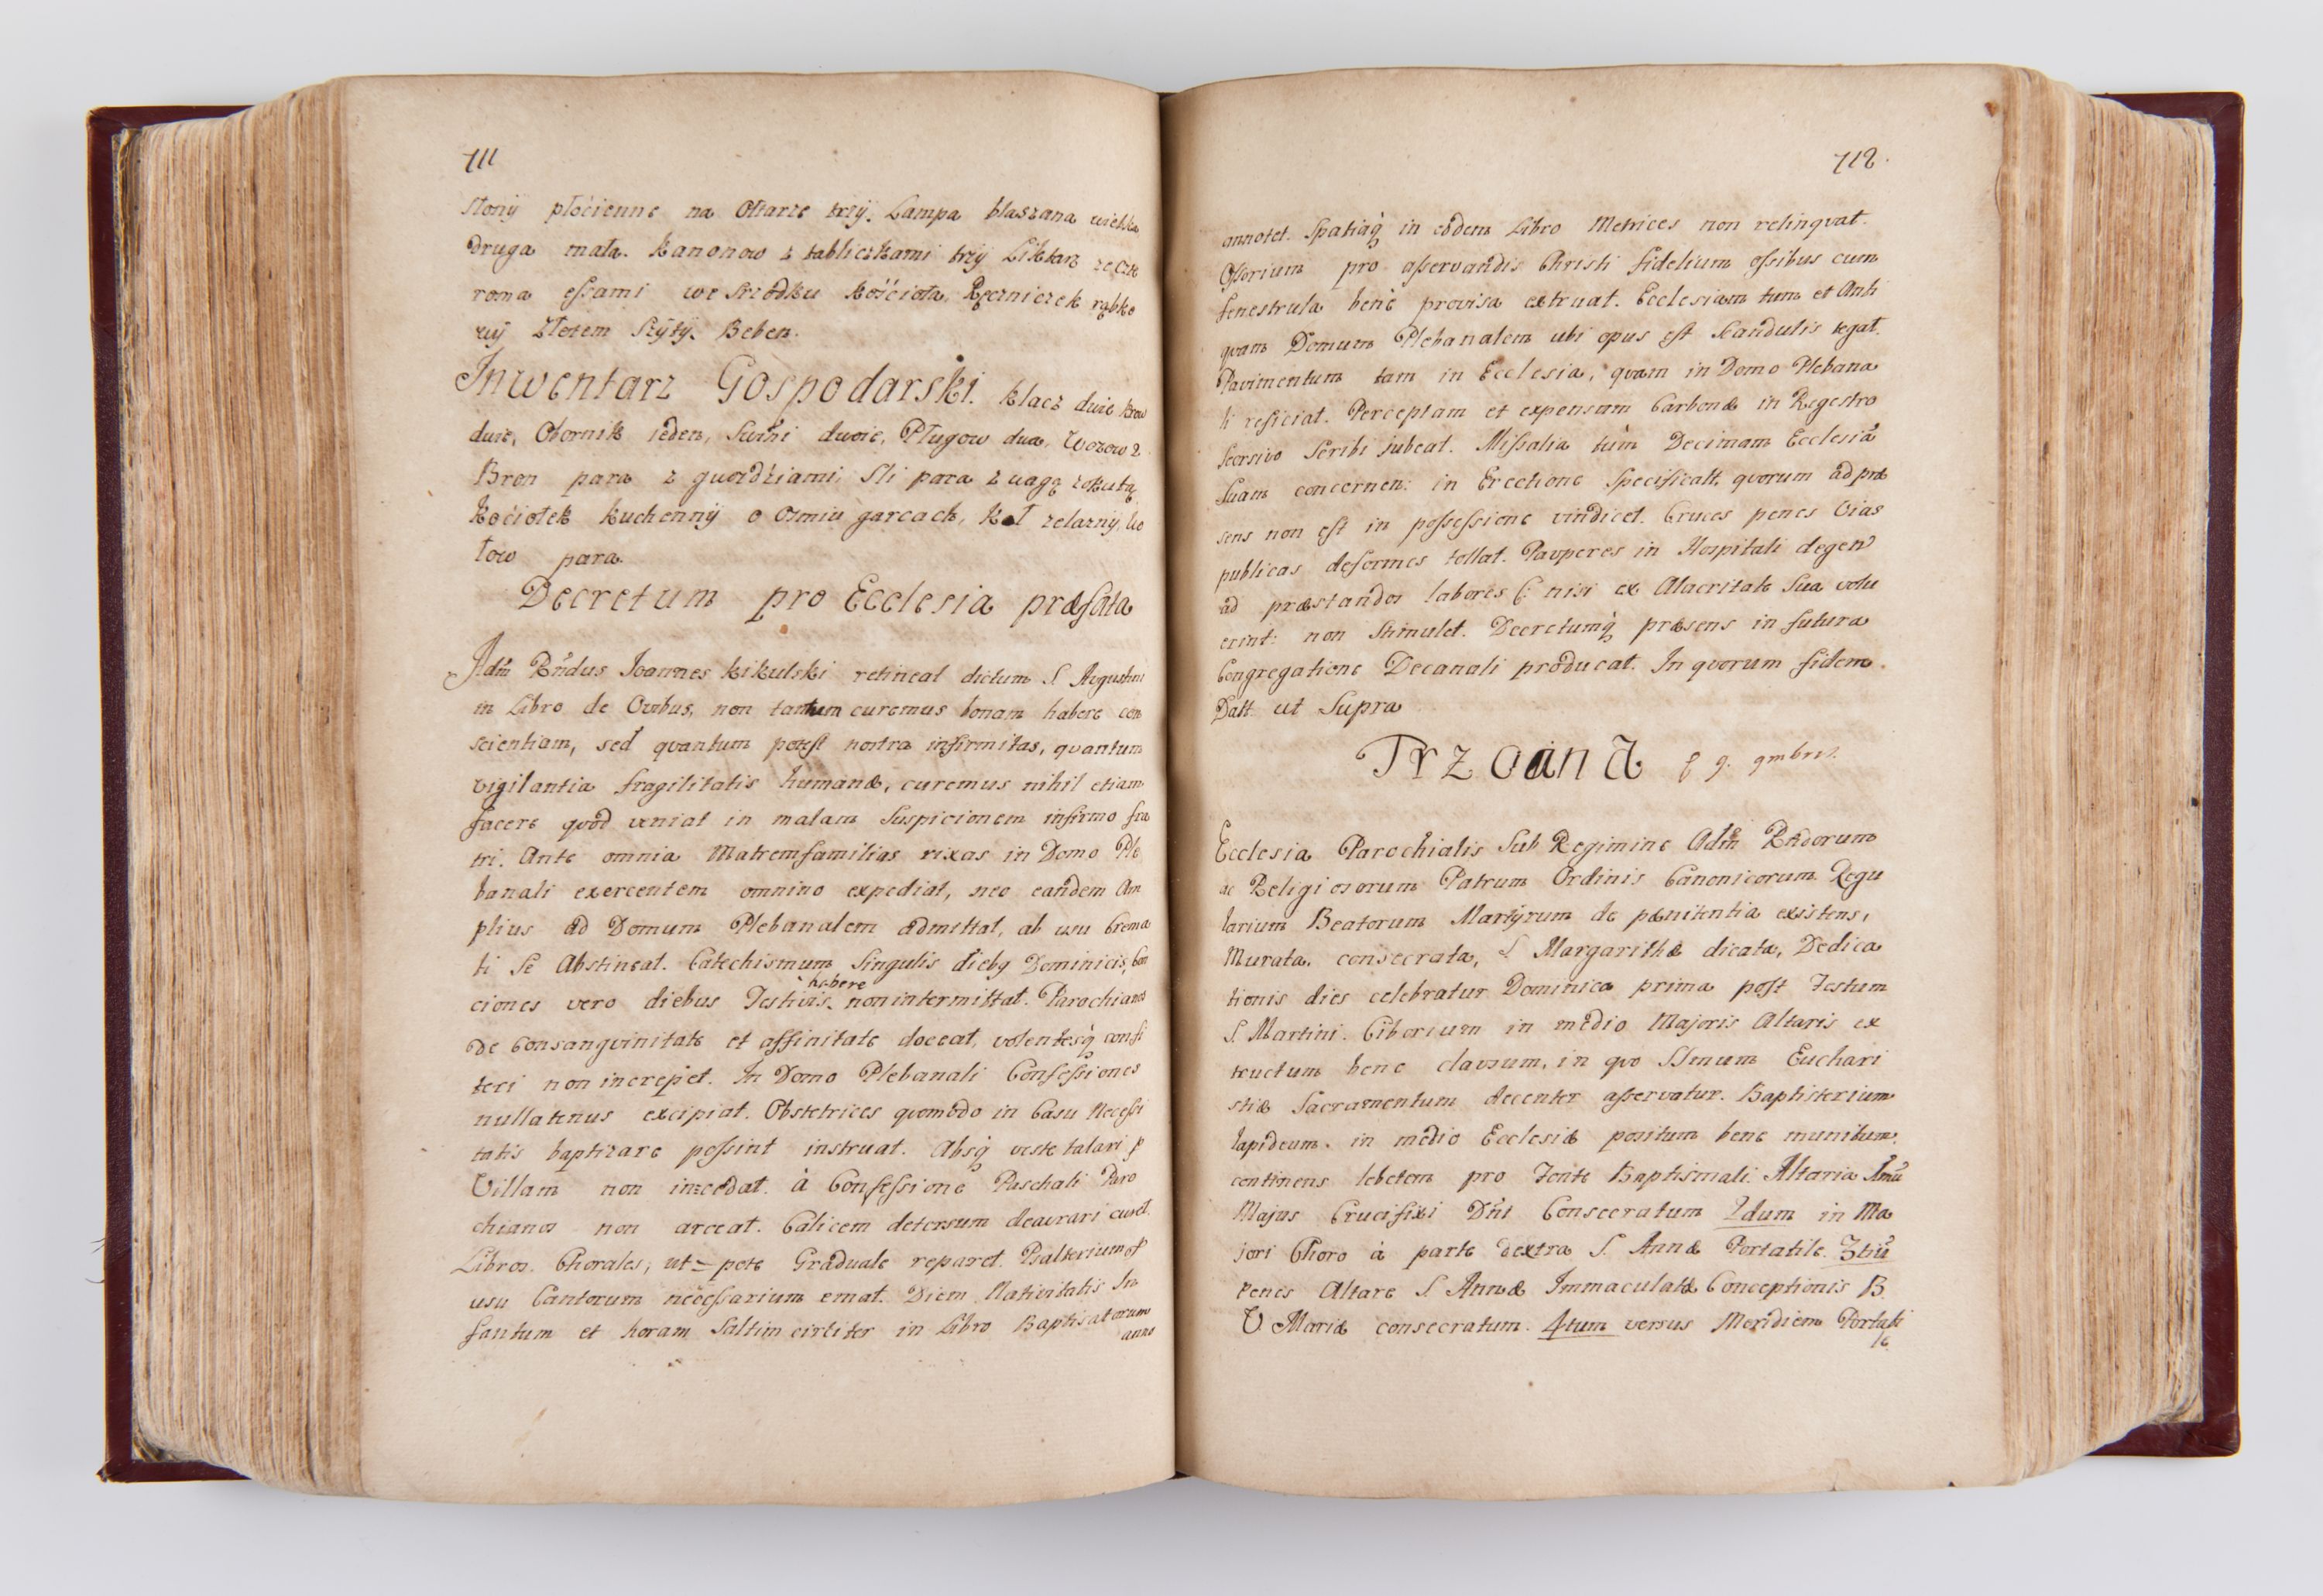 711
słonij płócienne na Ołtarze trzÿ. Lampa blaszana wielka
druga mała. Kanonow z tabliczkami trzÿ Liktarz ze czte
roma essami we srzodku kościoła, Ręczniczek rąbko
wÿ złotem szÿtÿ. Beben.
Inwentarz Gospodarski. klacz dwie krow
dwie, Obornik ieden, Swini dwoie, Pługow dwa, Wozow 2
Bron para z gwoździami, Sli para z wagą zokutą
Kociołek kuchennÿ o osmiu garcach, Kot zelaznÿ, Wo
łow para.
Decretum pro Ecclesia præfata
Adm Rndus Joannes Kikulski retineat dictum S. Augustini
in Libro de Ovibus, non tantum curemus bonam habere con
scientiam, sed quantum potest nostra infirmitas, quantum
vigilantia fragilitatis humanæ, curemus nihil etiam
facere quod veniat in malam suspicionem infirmo fra
tri. Ante omnia Matremfamilias rixas in Domo Ple
banali exercentem omnino expediat, nec eandem Am
plius ad Domum Plebanalem admittat, ab usu Crema
ti se Abstineat. Catechismum singulis diebq Dominicis, Con
habere
ciones vero diebus Festivis non intermittat. Parochianos
de Consangvinitate et affinitate doceat, volentesq confi
teri non increpet. In Domo Plebanali Confessiones
nullatenus excipiat. Obstetrices quomodo in Casu Necessi
tatis baptizare possint instruat. Absq veste talari p
Villam non incedat. à Confessione Paschali Paro
chianos non arceat. Calicem detersum deaurari curet.
Libros Chorales, ut=pote Graduale reparet. Psalterium p
usu Cantorum necessarium emat. Diem Nativitatis In
fantum et horam saltim circiter in Libro Baptisatorum
anno
712.
annotet. Spatiaq in eodem Libro Metrices non relinqvat.
Ossorium pro asservandis Christi fidelium ossibus cum
fenestrula benè provisa extruat. Ecclesiam tum et Anti
qvam Domum Plebanalem ubi opus est Scandulis tegat.
Pavimentum tam in Ecclesia, qvam in Domo Plebana
li reficiat. Perceptam et expensam Carbonæ in Regestro
Seorsivo Scribi jubeat. Missalia tùm Decimam Ecclesiã
Suam concernen: in Erectione Specificatt, qvorum ad præ
sens non est in possessione vindicet. Cruces penes Vias
publicas deformes tollat. Pauperes in Hospitali degen
ad præstandos labores (: nisi ex Alacritate sua volu
erint: non stimulet. Decretumq præsens in futura
Congregatione Decanali producat. In qvorum fidem.
Datt ut Supra
Trzciana 9. 9mbris.
Ecclesia Parochialis Sub Regimine Adm Rndorum
ac Religiosorum Patrum Ordinis Canonicorum Regu
larium Beatorum Martÿrum de pænitentia existens,
Murata, consecrata, S. Margarithæ dicata, Dedica
tionis dies celebratur Dominica prima post Festum
S. Martini. Ciborium in medio Majoris Altaris ex
tructum bene clausum, in qvo SSmum Euchari
stiæ Sacramentum decenter asservatur. Baptisterium
lapideum in medio Ecclesiæ positum bene munitum,
continens lebetem pro Fonte Baptismali. Altaria 1mũ
Majus Crucifixi Dni Consecratum 2dum in Ma
jori Choro à parte dextra S. Annæ Portatile. 3tiũ
penes Altare S. Annæ Immaculatæ Conceptionis B.
V Mariæ consecratum. 4tum versus Meridiem Portati
le